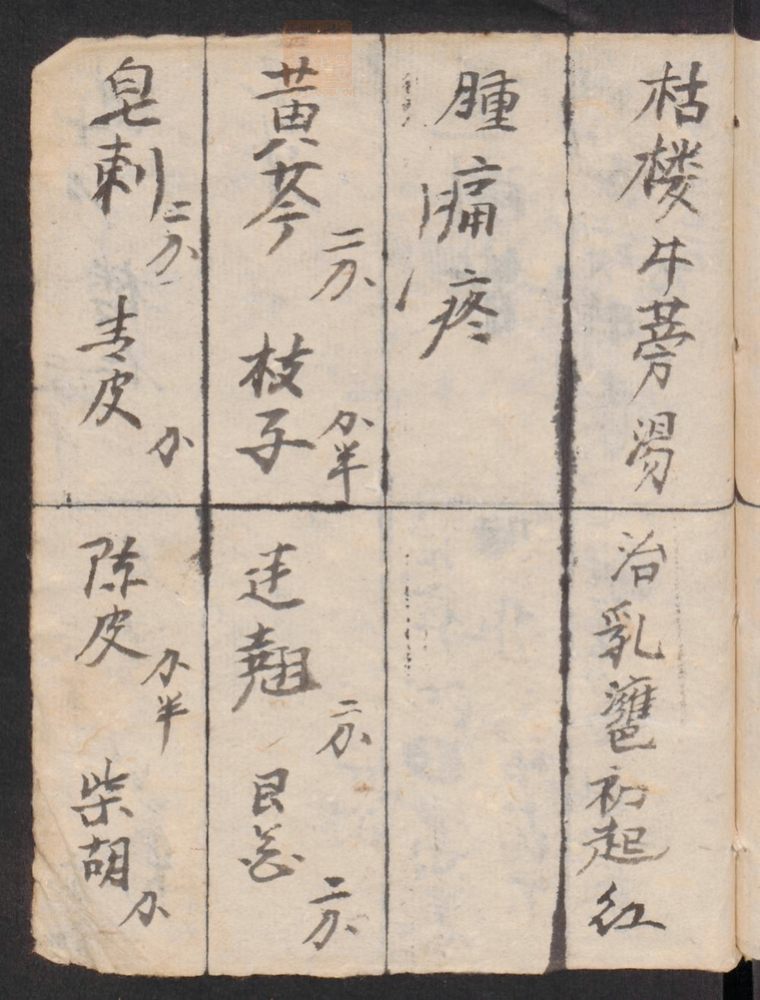 枯楼牛蒡湯 治乳癰初起紅
腫痛疼
黄芩二分 枝子分半 連翹二分 艮花二分
皂刺二分 青皮分 陈皮分半 柴胡分